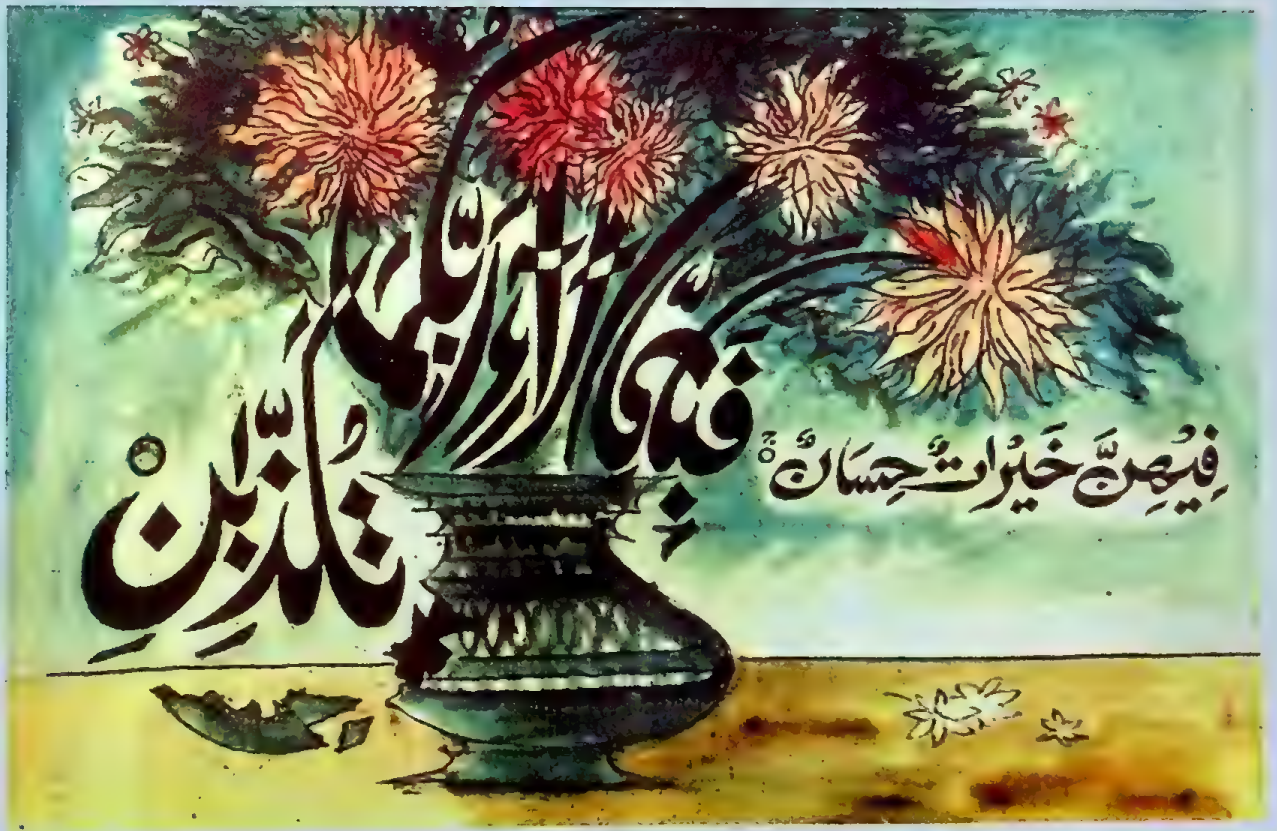 فِيهِنَّ خَيْرَاتٌ حِسَانٌ ۚ
فَبِأَيِّ آلَاءِ رَبِّكُمَا تُكَذِّبٰنِ